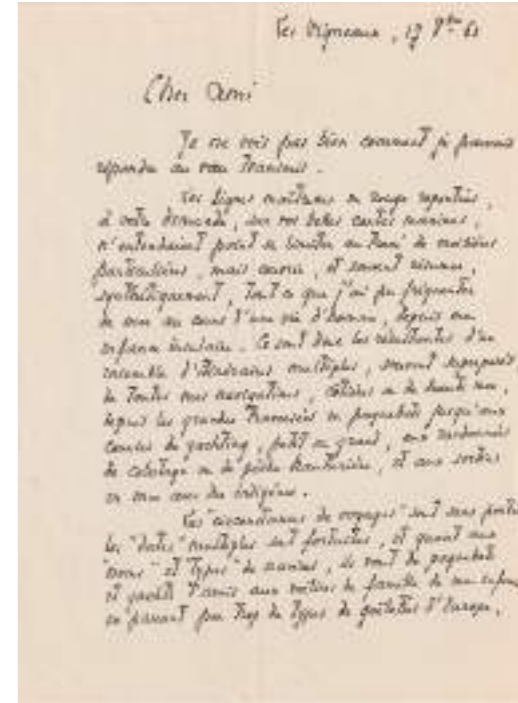 Les Vigneaux, 17 8bre 61
Cher Ami
Je ne vois pas bien comment je pourrais
répondre au vœu transmis.
Les lignes maritimes en rouge reportées,
à votre demande, sur vos belles cartes marines,
n'entendaient point se limiter au tracé de croisières
particulières, mais couvrir, et souvent résumer,
synthétiquement, tout ce que j'ai pu fréquenter
de mer au cours d'une vie d'homme, depuis mon
enfance insulaire. Ce sont donc les résultantes d'un
ensemble d'itinéraires multiples, souvent superposés,
de toutes mes navigations, côtières ou de haute mer,
depuis les grandes traversées en paquebots jusqu'aux
courses de yachting, petit ou grand, aux randonnées
de cabotage ou de pêche hauturière, et aux sorties
en mer avec des indigènes.
Les "circonstances de voyages" sont sans portée
les "dates" multiples sont fortuites, et quant aux
"noms" et "types" de navires, ils vont de paquebots
et yachts d'amis aux voiliers de famille de mon enfance
en passant par trop de types de goélettes d'Europe.